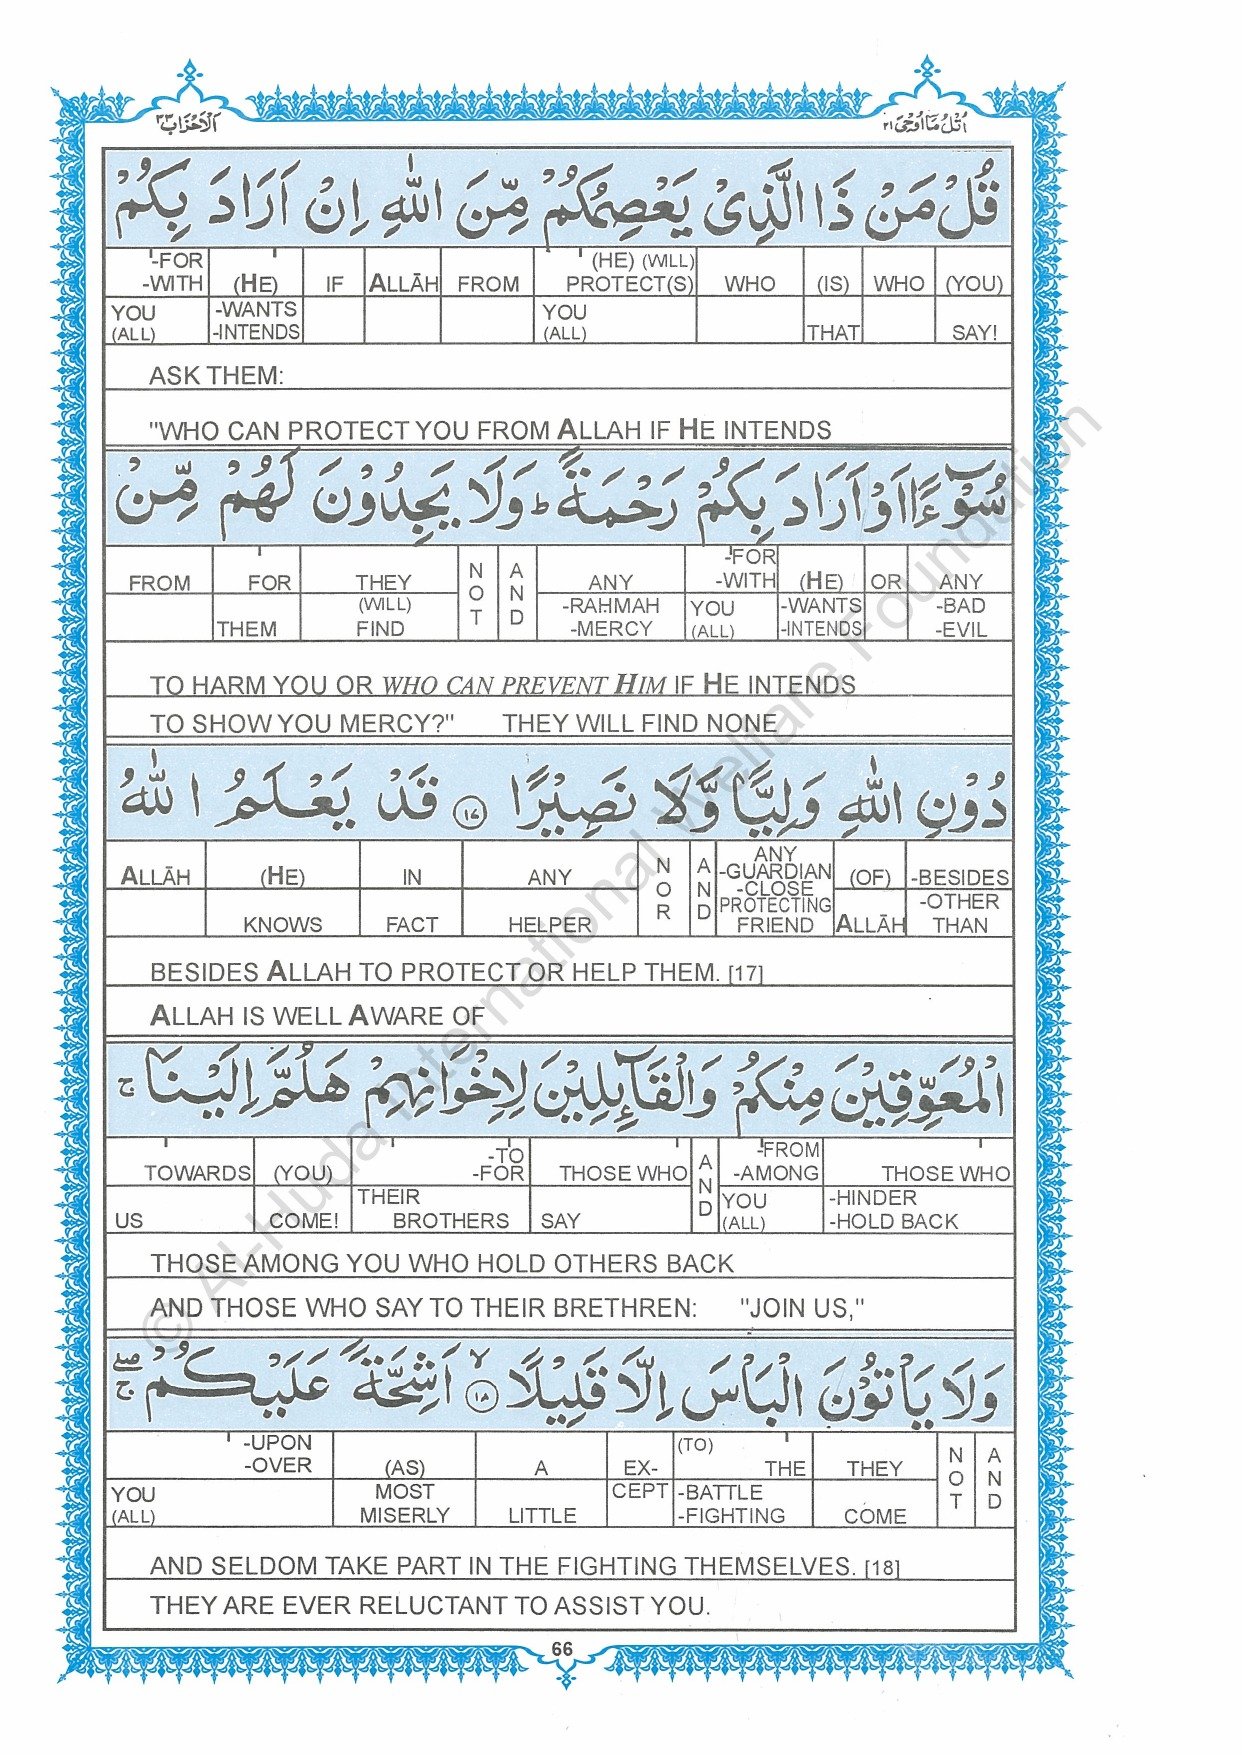 اَلْاَحْزَاب ٣٣ اُتْلُ مَآ اُوْحِیَ ٢١
قُلْ مَنْ ذَا الَّذِیْ یَعْصِمُكُمْ مِّنَ اللّٰهِ اِنْ اَرَادَ بِكُمْ
-FOR (HE) (WILL)
-WITH (HE) IF ALLĀH FROM PROTECT(S) WHO (IS) WHO (YOU)
YOU -WANTS YOU
(ALL) -INTENDS (ALL) THAT SAY!
ASK THEM:
"WHO CAN PROTECT YOU FROM ALLAH IF HE INTENDS
سُوْٓءًا اَوْ اَرَادَ بِكُمْ رَحْمَةً ؕ وَلَا یَجِدُوْنَ لَهُمْ مِّنْ
-FOR
FROM FOR THEY NOT AND ANY -WITH (HE) OR ANY
(WILL) -RAHMAH YOU -WANTS -BAD
THEM FIND -MERCY (ALL) -INTENDS -EVIL
TO HARM YOU OR WHO CAN PREVENT HIM IF HE INTENDS
TO SHOW YOU MERCY?" THEY WILL FIND NONE
دُوْنِ اللّٰهِ وَلِیًّا وَّلَا نَصِیْرًا ١٧ قَدْ یَعْلَمُ اللّٰهُ
ANY
ALLĀH (HE) IN ANY NOR AND -GUARDIAN (OF) -BESIDES
-CLOSE
PROTECTING -OTHER
KNOWS FACT HELPER FRIEND ALLĀH THAN
BESIDES ALLAH TO PROTECT OR HELP THEM. [17]
ALLAH IS WELL AWARE OF
الْمُعَوِّقِیْنَ مِنْكُمْ وَالْقَآىِٕلِیْنَ لِاِخْوَانِهِمْ هَلُمَّ اِلَیْنَا ۚ
-TO -FROM
TOWARDS (YOU) -FOR THOSE WHO AND -AMONG THOSE WHO
THEIR YOU -HINDER
US COME! BROTHERS SAY (ALL) -HOLD BACK
THOSE AMONG YOU WHO HOLD OTHERS BACK
AND THOSE WHO SAY TO THEIR BRETHREN: "JOIN US,"
وَلَا یَاْتُوْنَ الْبَاْسَ اِلَّا قَلِیْلًا ١٨ ۙ اَشِحَّةً عَلَیْكُمْ ۖۚ
-UPON (TO)
-OVER (AS) A EX- THE THEY NOT AND
YOU MOST CEPT -BATTLE
(ALL) MISERLY LITTLE -FIGHTING COME
AND SELDOM TAKE PART IN THE FIGHTING THEMSELVES. [18]
THEY ARE EVER RELUCTANT TO ASSIST YOU.
66
© Al-Huda International Welfare Foundation